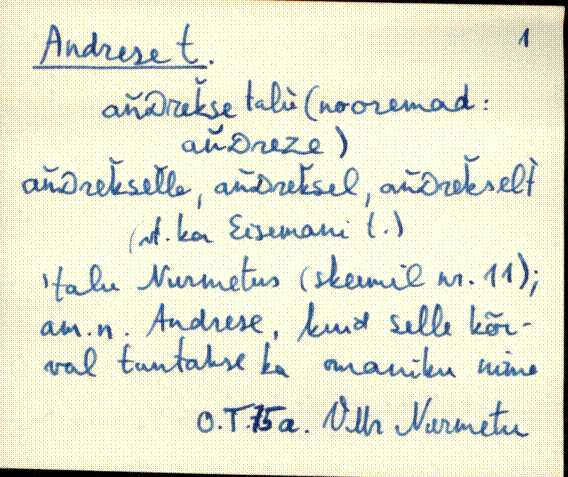 Andrese t. 1
añDrekse talu (nooremad:
añDreze)
añDrekselle, añDreksel, añDrekselt
(vt. ka Eisemani t.)
'talu Nurmetus (skeemil nr. 11);
am.n. Andrese, kuid selle kõr-
val tuntakse ka omaniku nime
O.T. 75 a. VMr Nurmetu